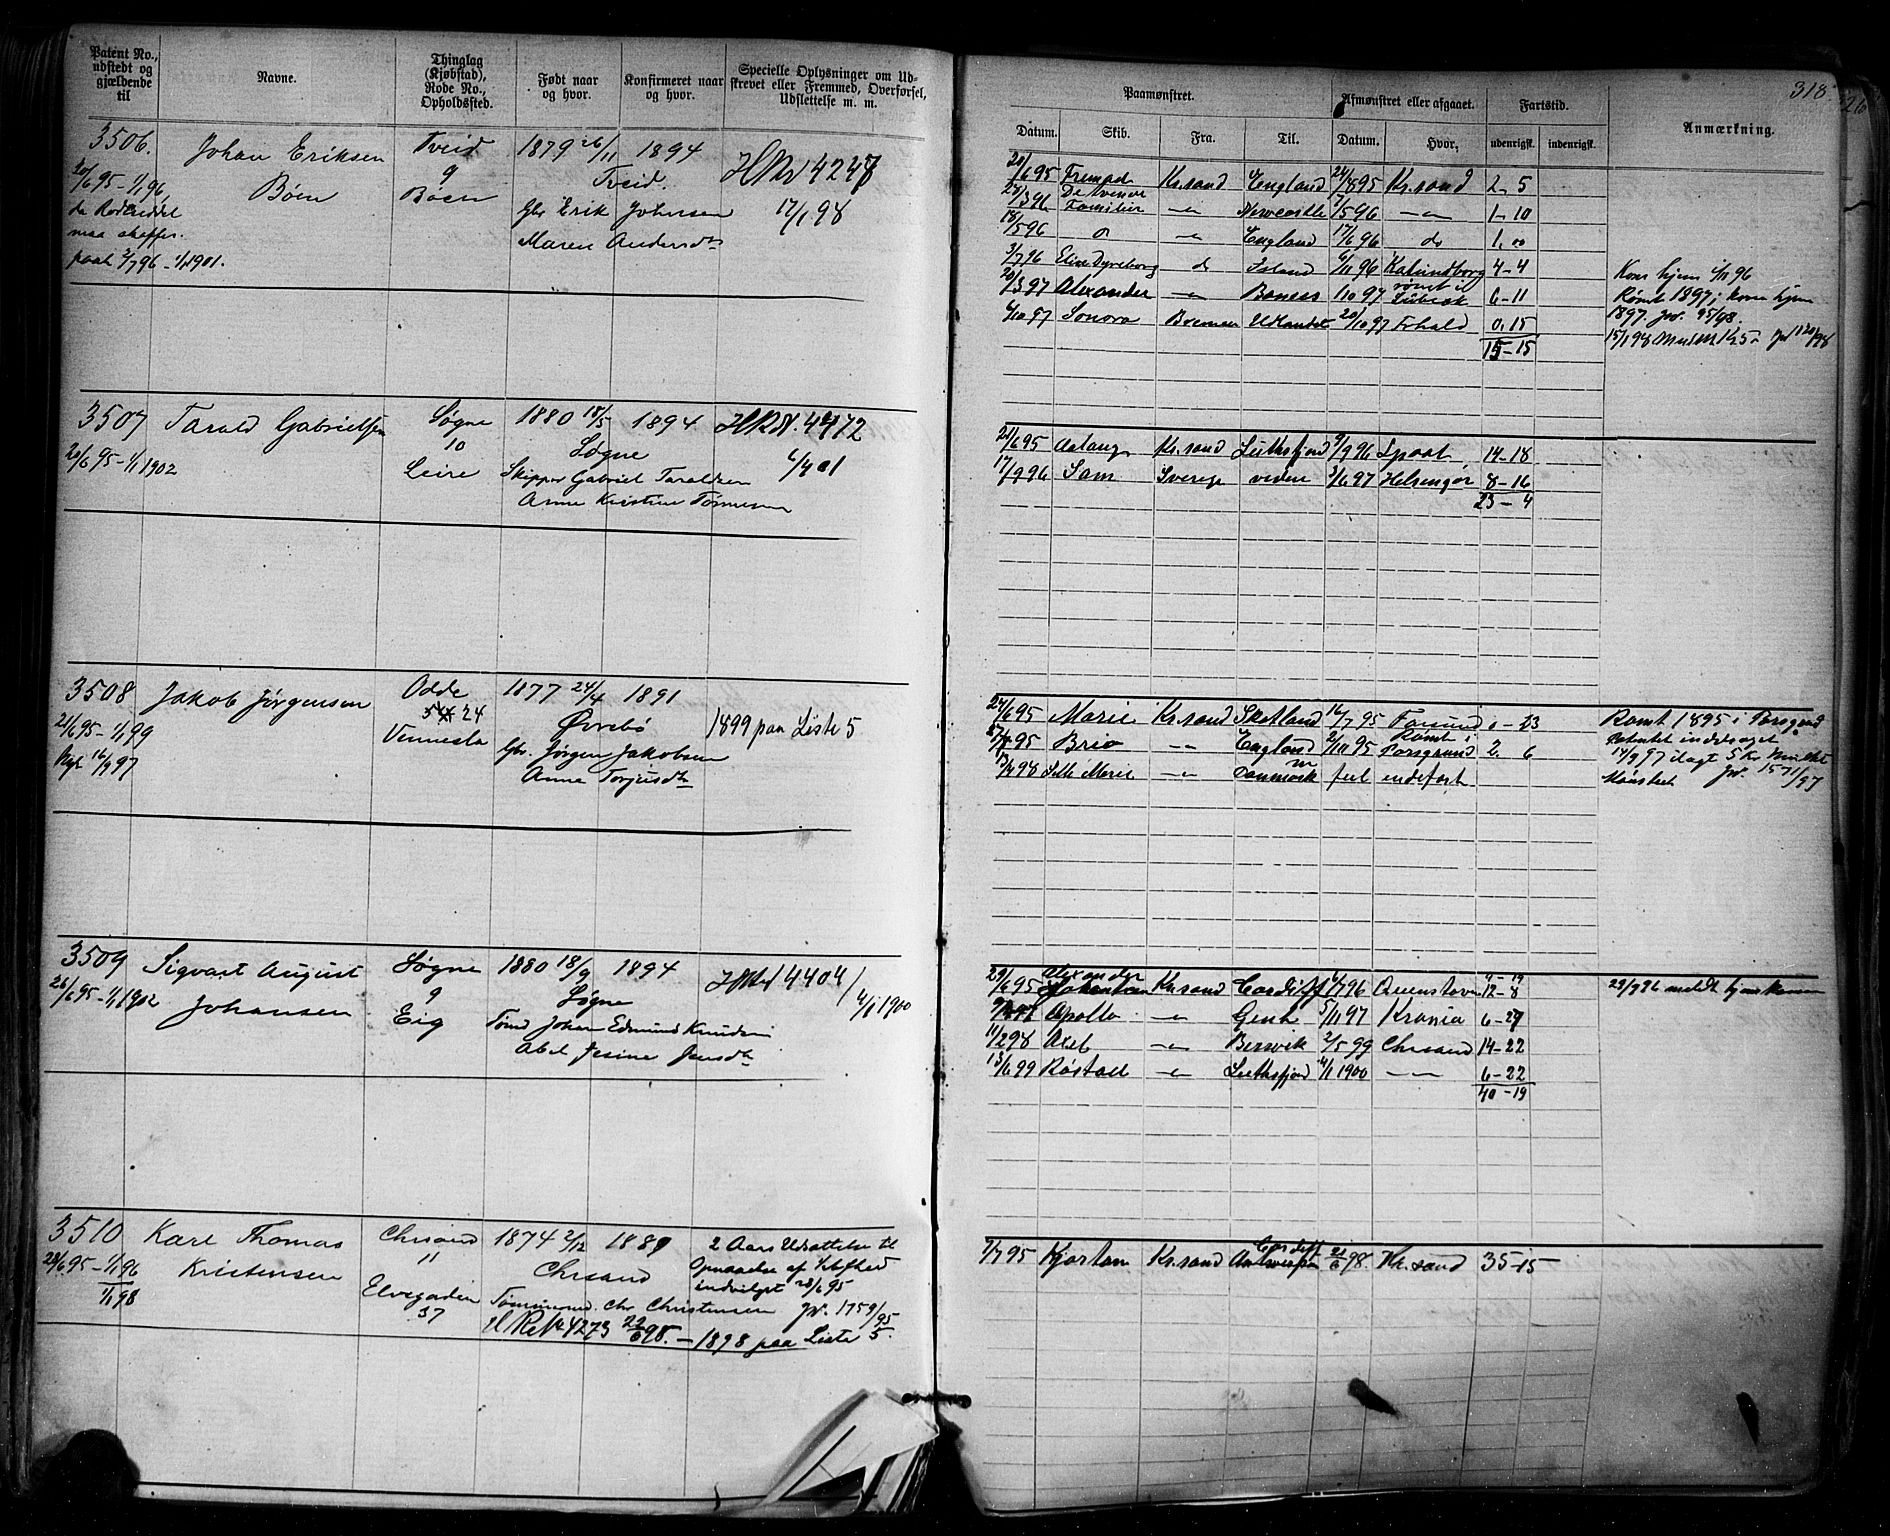 Patent No., udstedt og gjældende til
Navne.
Thinglag (Kjøbstad), Rode No., Opholdssted.
Født naar og hvor.
Konfirmeret naar og hvor.
Specielle Oplysninger om Udskrevet eller Fremmed, Overførsel, Udslettelse m. m.
Paamønstret.
Afmønstret eller afgaaet.
Fartstid.
Anmærkning.
318.
Datum.
Skib.
Fra.
Til.
Datum.
Hvor.
udenrigsk.
indenrigsk.
3506.
20/6 95 - 1/1 96,
da Rodeseddel
maa skaffes.
paat 2/7 96 - 1/1 1901.
Johan Eriksen
Bøen
Tveid
9
Bøen
1879 26/11 1894
Tveid.
Gbr Erik Johnsen
Maren Andersdt
HRN 4247
17/1 98
20/6 95 Fremad Kr.sand England 24/8 95 Kr.sand 2-5
De svenske
Familier - Newcastle 7/5 96 - 1-10
18/5 96 - England 17/6 96 do 1,00
2/7 96 Elise Dyreborg do Island 6/11 96 Kalundborg 4-4
20/3 97 Alexander - Boness 1/10 97 rømt i Lübeck 6-11
Sonora Bremen Udlandet 20/10 97 Fshald 0.15
15-15
Kom hjem 1/11 96
Rømt 1897; kom hjem
1897. Jr. 95/98.
3507
20/6 95 - 1/1 1902
Tarald Gabrielsen
Søgne
10
Leire
1880 18/5 1894
Søgne
Skipper Gabriel Taraldsen
Anne Kristine Tønnesen
HRN. 4472
6/4 01
21/6 95 Aslaug Kr.sand Leithsfjord 9/9 96 Lpool 14-18
17/9 96 Sam Sverige videre 3/6 97 Helsingør 8-16
23-4
3508
21/6 95 - 1/1 99
Nyt 16/9 97
Jakob Jørgensen
Odde
24
Vennesla
1877 24/4 1891
Øvrebø
Gbr. Jørgen Jakobsen
Anna Torjusdt
1899 paa Liste 5
24/6 95 Marie Kr.sand Skotland 16/7 95 Farsund 0-23
95 Brio - England 2/11 95 Rømt i Porsgrund 2. 6
98 Marie - Danmark feil indført
Rømt 1895 i Porsgrund
Patentet inddraget.
14/9 97 ilagt 5 Kr Mulkt
Mønstret Jr. 1571/97
3509
26/6 95 - 1/1 1902
Sigvart August
Johansen
Søgne
9
Eig
1880 18/9 1894
Søgne
Tømd Johan Edmund Knudsen
Abel Jesine Jensdt
4404
4/1 1900
29/6 95 Alexander Kr.sand Cardiff 96 12-8
Apollo - Genh 5/11 97 Krania 6-29
11/2 98 Axel - Berwik 2/5 99 Chrsand 14-22
13/6 99 Røstad - Leithsfjord 4/1 1900 - 6-22
40-19
23/9 96 meldt hjemkommen
3510
28/6 95 - 1/1 96
1/1 98
Karl Thomas
Kristensen
Chrsand
11
Elvegaden
37
1874 2/12 1889
Chrsand
Tømmermd. Chr Christensen
2 Aars Udsættelse til
Opnaaelse af
indvilget 28/6 95
Jr. 1759/95
HRN 4273 22/6 98. - 1898 paa Liste 5.
1/7 95 Kjartan Kr.sand Cardiff Antwerpen 21/6 98. Kr.sand 35-15